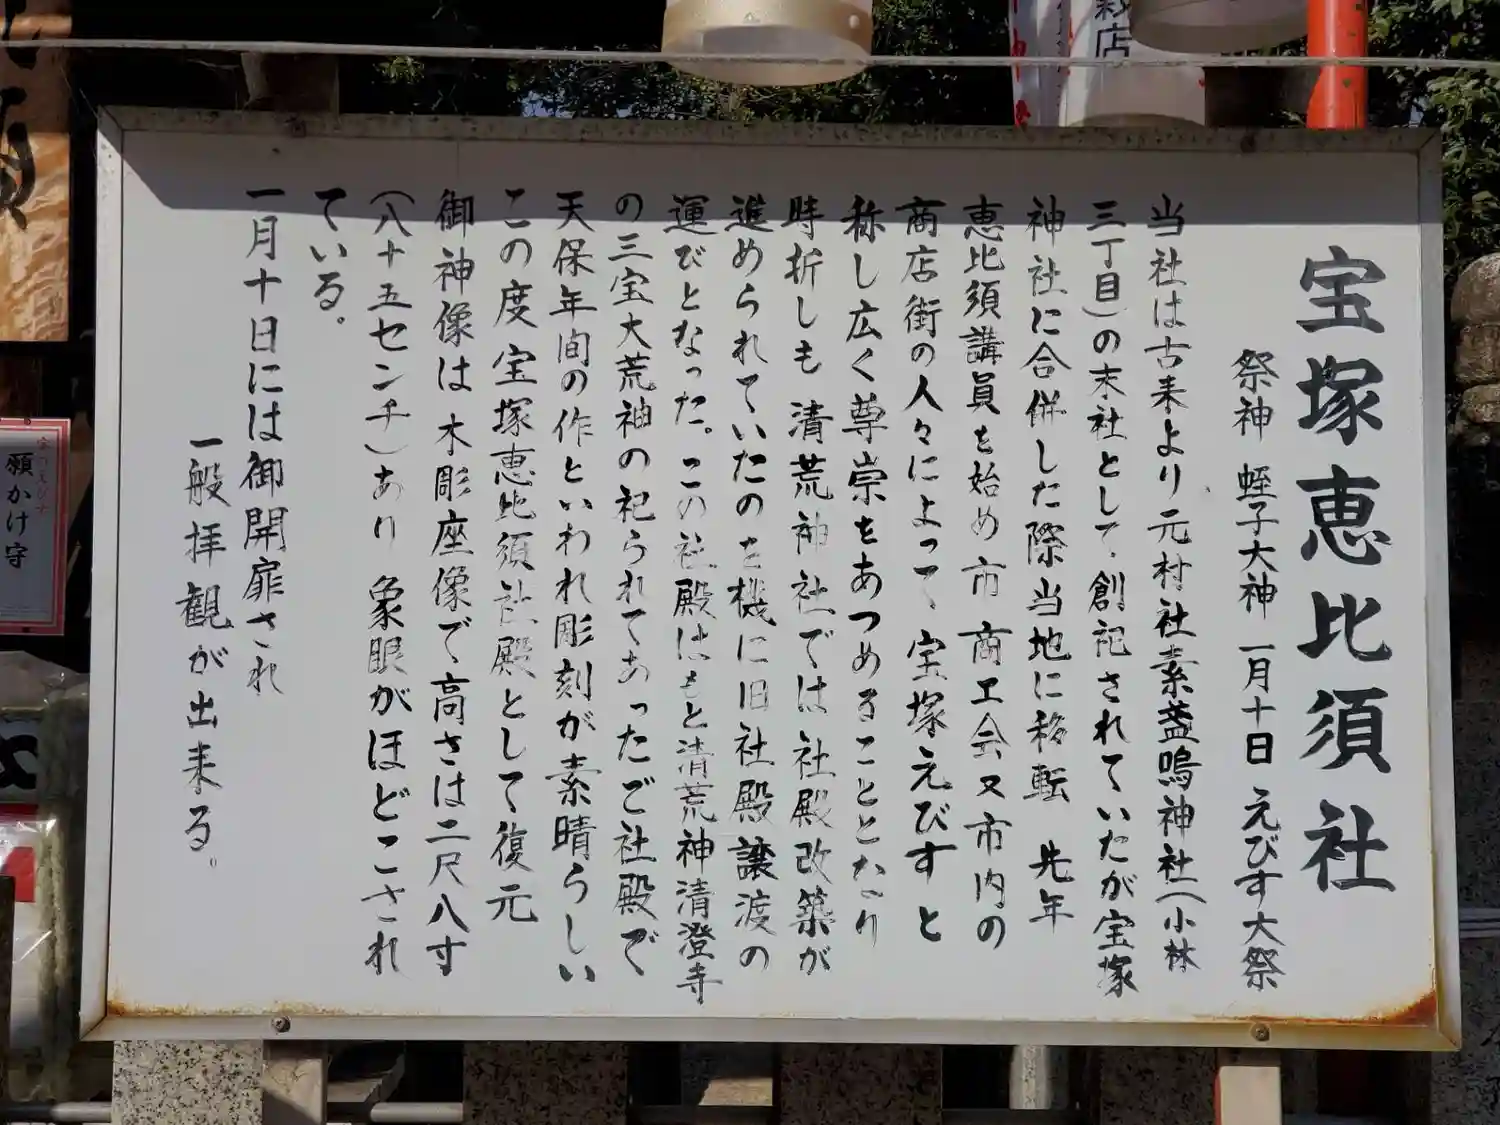 宝塚恵比須社
祭神 蛭子大神 一月十日 えびす大祭
当社は古来より元村社素盞嗚神社(小林
三丁目)の末社として、創祀されていたが宝塚
神社に合併した際当地に移転 先年
恵比須講員を始め市商工会又市内の
商店街の人々によって、宝塚えびすと
称し広く尊崇をあつめることとなり
時折しも 清荒神社では社殿改築が
進められていたのを機に旧社殿譲渡の
運びとなった。この社殿はもと清荒神清澄寺
の三宝大荒神の祀られてあったご社殿で
天保年間の作といわれ彫刻が素晴らしい
この度宝塚恵比須社殿として復元
御神像は木彫座像で高さは二尺八寸
(八十五センチ)あり 象眼がほどこされ
ている。
一月十日には御開扉され
一般拝観が出来る。
願かけ守